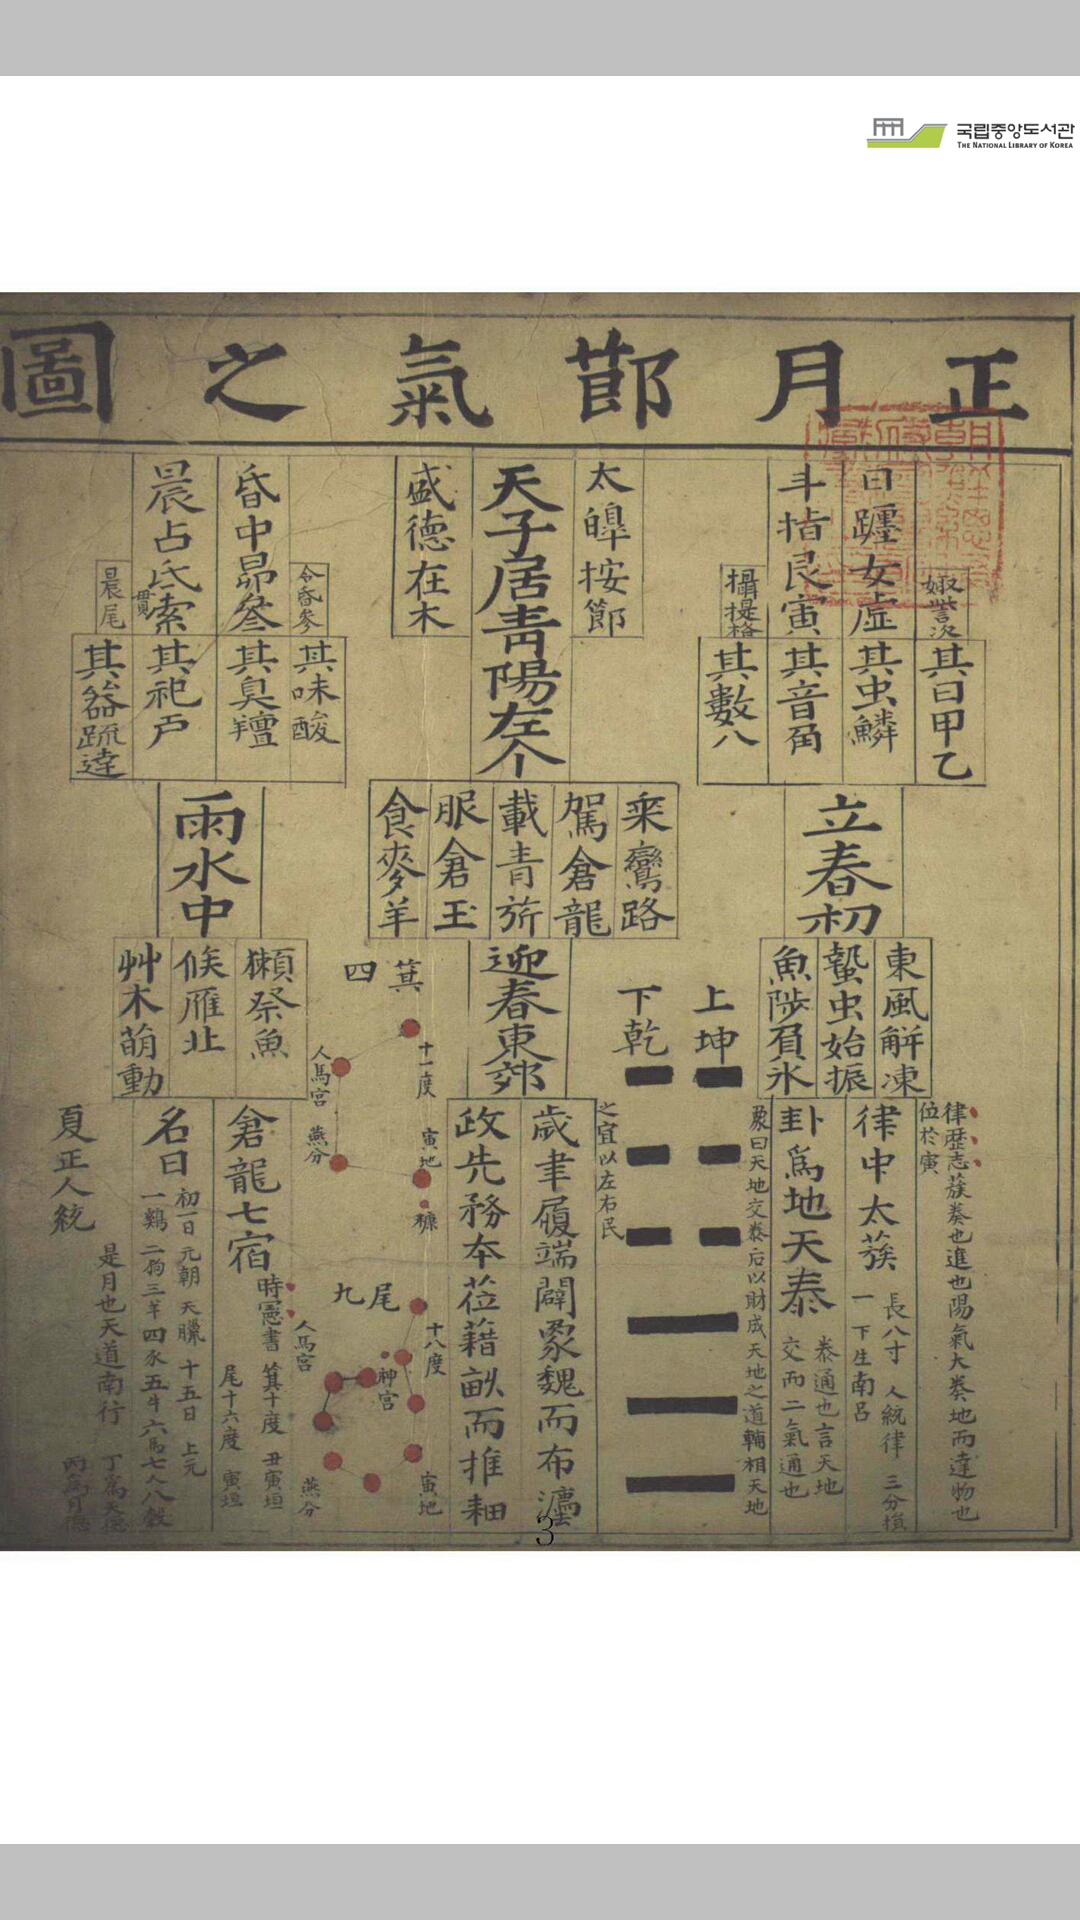 국립중앙도서관
THE NATIONAL LIBRARY OF KOREA
正月節氣之圖
娵訾次
日躔女虛
斗指艮寅
攝提格
其日甲乙
其虫鱗
其音角
其數八
太皥按節
天子居靑陽左个
盛德在木
令昏參
昏中昴參
晨占氐索
貫
晨尾
其味酸
其臭羶
其祀戶
其器疏達
立春初
乘鸞路
駕倉龍
載青旂
服倉玉
食麥羊
雨水中
東風解凍
蟄虫始振
魚陟負氷
上坤
下乾
迎春東郊
箕四
獺祭魚
候雁北
艸木萌動
律歷志蔟奏也進也陽氣大奏地而達物也
位於寅
律中太蔟
長八寸 人統律 三分損
一下生南呂
卦爲地天泰
泰通也言天地
交而二氣通也
象曰天地交泰后以財成天地之道輔相天地
之宜以左右民
歲聿履端闢象魏而布灋
政先務本莅藉畝而推耕
十一度
寅地
糠
人馬宮
燕分
尾九
十八度
神宮
寅地
人馬宮
燕分
倉龍七宿
時憲書 箕十度 丑寅垣
尾十六度 寅垣
名日
初一日 元朝 天臘 十五日 上元
一鷄二狗三羊四豕五牛六馬七人八穀
夏正人統
是月也天道南行 丁爲天德
丙爲月德
3